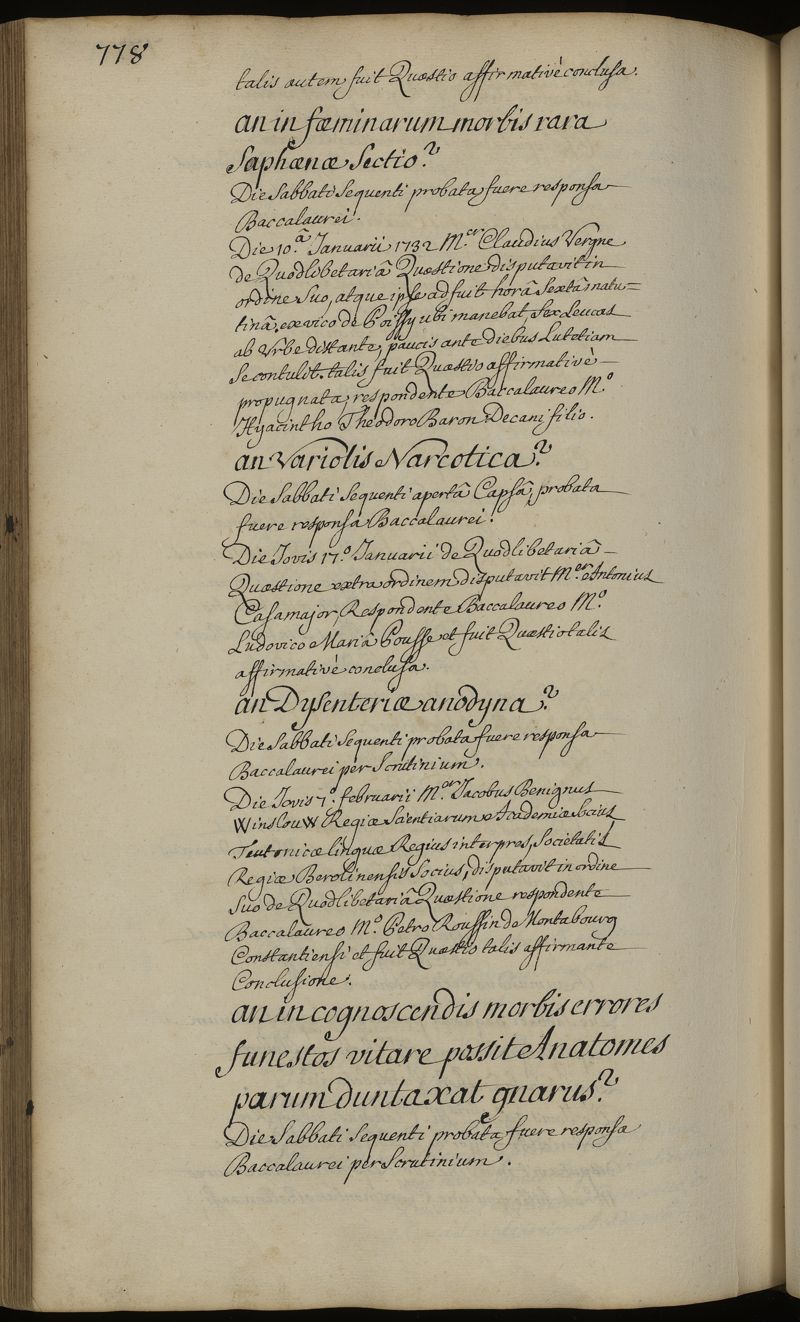 778
talis autem fuit Quæstio affirmativè conclusa.
an in fœminarum morbis rara
Saphænæ Sectio?
Die Sabbati Sequenti probata fuere responsa
Baccalaurei.
Die 10.ª Januarii 1732 M.er Claudius Vergne
de Quodlibetariâ Quæstione disputavit in
ordine Suo, atque ipse adfuit horâ Sextâ matu=
tinâ, ex vico de Poissy ubi manebat, Sex Leucas
ab Urbe distante, paucis ante diebus Lutetiam
Se contulit. talis fuit Quæstio affirmativè
propugnata, respondente Baccalaureo M.º
Hyacintho Theodoro Baron Decani filio.
an Variolis Narcotica?
Die Sabbati Sequenti apertâ Capsâ, probata
fuere responsa Baccalaurei.
Die Jovis 17.º Januarii de Quodlibetariâ
Quæstione extra ordinem disputavit M.er Antonius
Casamajor, Respondente Baccalaureo M.º
Ludovico Mariâ Pousse et fuit Quæstio talis
affirmativè conclusa.
an Dysenteriæ anodyna?
Die Sabbati Sequenti probata fuere responsa
Baccalaurei per Scrutinium.
Die Jovis 7.º februarii M.er Jacobus Benignus
WinslouW Regiæ Scientiarum Academiæ Socius
Teutonicæ linguæ Regius interpres, Societatis
Regiæ Berolinensis Socius, disputavit in ordine
Suo de Quodlibetariâ Quæstione respondente
Baccalaureo M.º Petro Roussin de Montabourg
Constantiensi et fuit Quæstio talis affirmante
Conclusione.
an in cognoscendis morbis errores
funestos vitare possit Anatomes
parum duntaxat gnarus?
Die Sabbati Sequenti probata fuere responsa
Baccalaurei per Scrutinium.